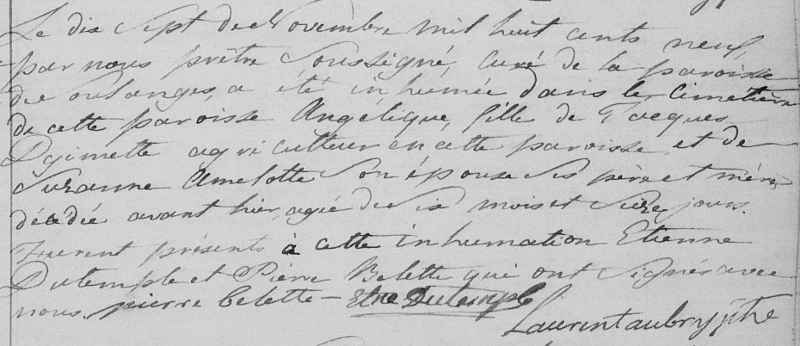 Le dix Sept de Novembre mil huit cents neuf,
par nous prêtre Soussigné, curé de la paroisse
des oulanges, a été inhumée dans le Cimetière
de cette paroisse Angélique, fille de Jacques
agriculteur en cette paroisse et de
Suzanne Amelotte Son épouse Ses père et mère,
décédée avant hier, agée de Six mois et jours.
Furent présents à cette inhumation Etienne
Dutemple et Pierre Belette qui ont Signé avec
nous. pierre belette - Etne Dutemple
Laurent aubry ptre